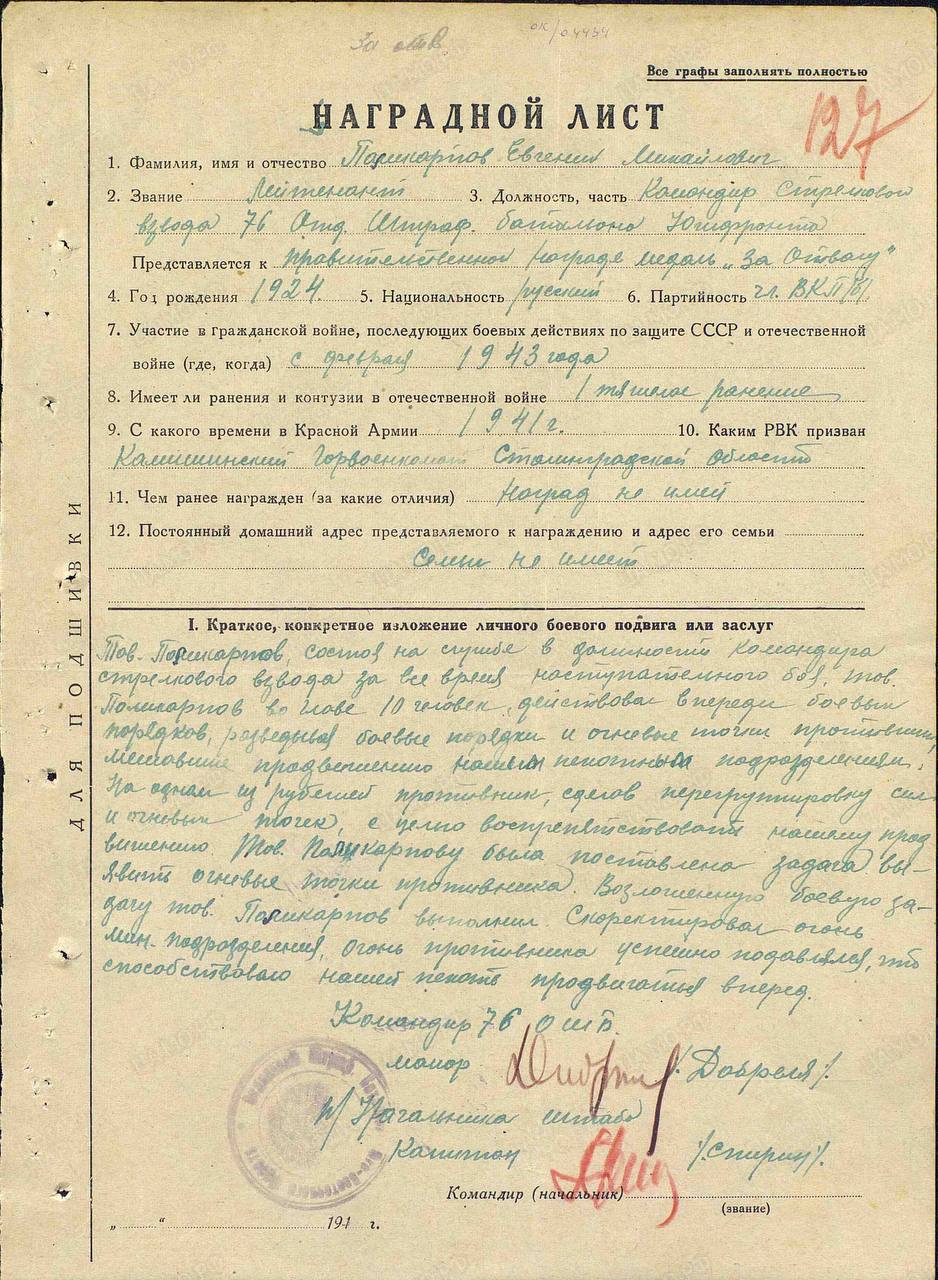 За отв
ок/04434
Все графы заполнять полностью
НАГРАДНОЙ ЛИСТ
127
1. Фамилия, имя и отчество Поликарпов Евгений Михайлович
2. Звание Лейтенант 3. Должность, часть Командир стрелкового
взвода 76 Отд Штраф. батальона Югфронта
Представляется к правительственной награде медаль „За Отвагу"
4. Год рождения 1924. 5. Национальность русский 6. Партийность чл. ВКП/б/
7. Участие в гражданской войне, последующих боевых действиях по защите СССР и отечественной
войне (где, когда) с февраля 1943 года
8. Имеет ли ранения и контузии в отечественной войне 1 тяжелое ранение
9. С какого времени в Красной Армии 1941г. 10. Каким РВК призван
Камышинский Горвоенкомат Сталинградской области
11. Чем ранее награжден (за какие отличия) Наград не имеет
12. Постоянный домашний адрес представляемого к награждению и адрес его семьи
Семьи не имеет
ДЛЯ ПОДШИВКИ
I. Краткое, конкретное изложение личного боевого подвига или заслуг
Тов. Поликарпов, состоя на службе в должности Командира
стрелкового взвода за все время наступательного боя, тов.
Поликарпов во главе 10 человек, действовал впереди боевых
порядков, разведывая боевые порядки и огневые точки противника,
мешавшие продвижению нашим пехотным подразделениям.
На одном из рубежей противник, сделав перегруппировку сил
и огневых точек, с целью воспрепятствовать нашему прод
вижению. Тов. Поликарпову была поставлена задача вы-
явить огневые точки противника. Возложенную боевую за-
дачу тов. Поликарпов выполнил. Скоректировал огонь
мин. подразделения, огонь противника успешно подавлялся, что
способствовало нашей пехоте продвигаться вперед.
Командир 76 ОШБ.
майор /Доброля/.
п/Начальника штаба
Капитан /Стирин/.
Командир (начальник)
(звание)
„ " 194 г.